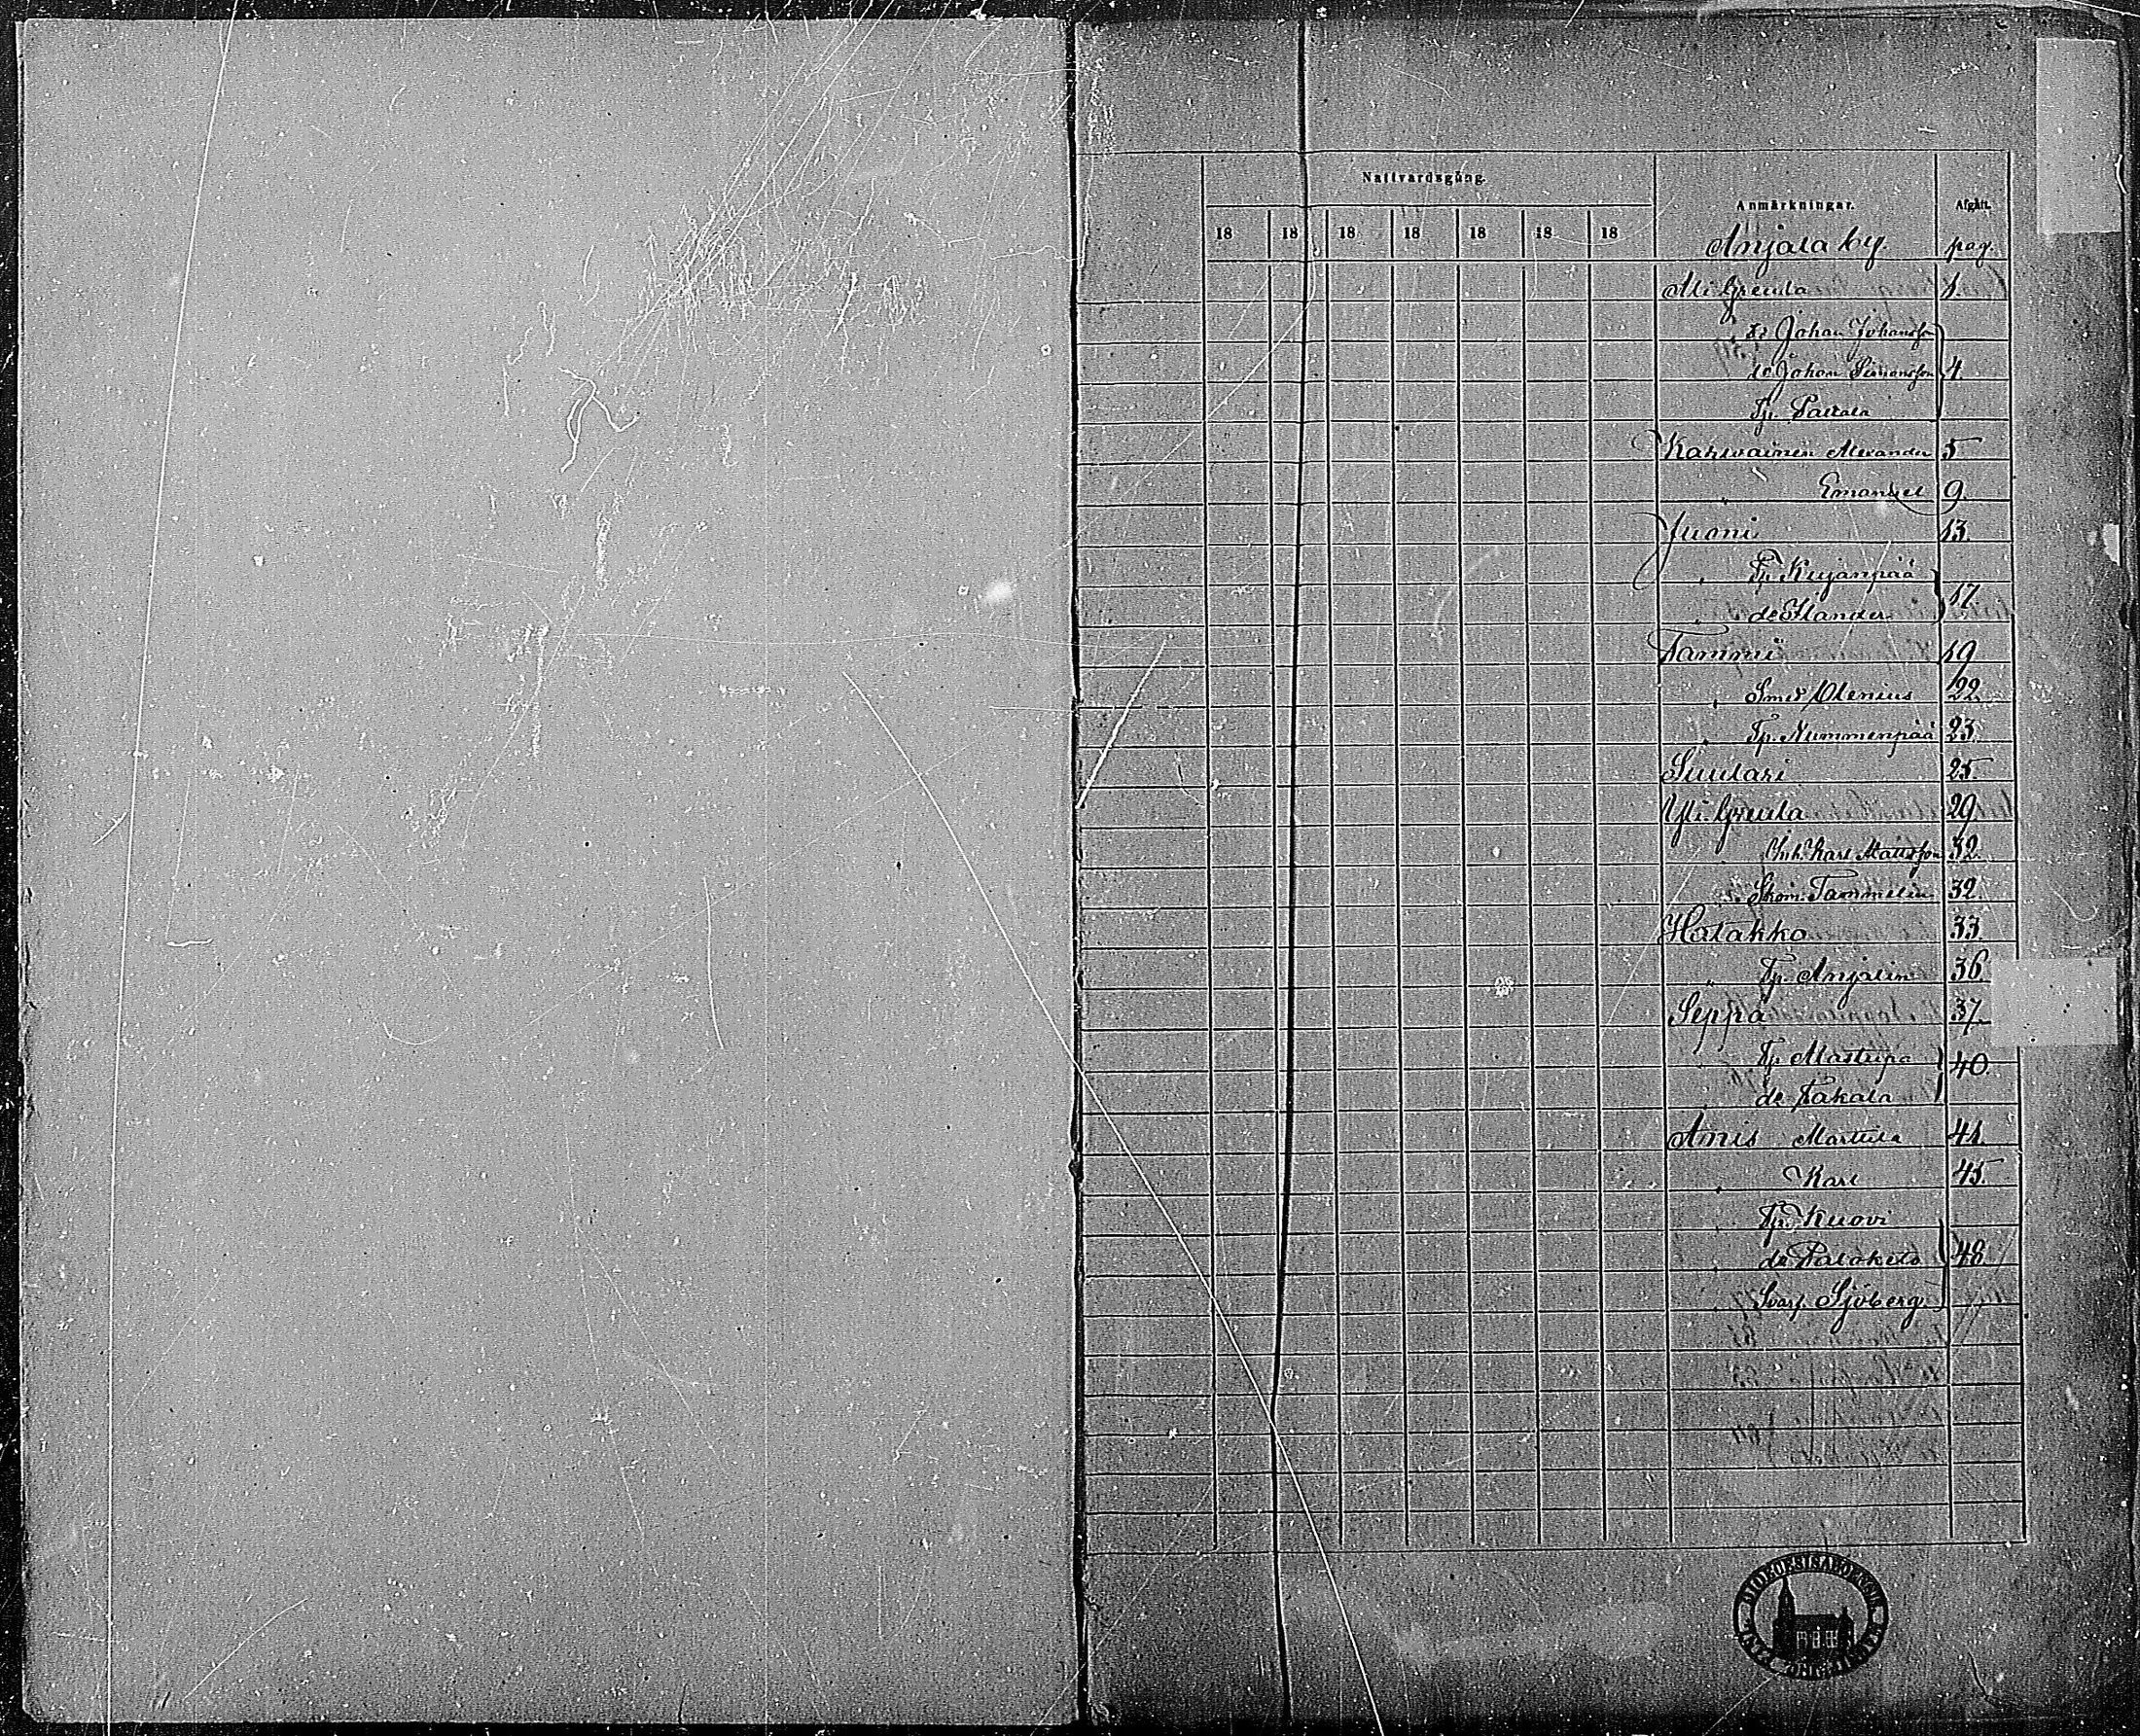 Nattvardsgång.
Anmärkningar.
Afgått.
18 18 18 18 18 18 18
Anjala by. pag.
Ali Greula 1.
do Johan Johansson
do Johan Simonsson 4.
Tp. Pallala
Karwainen Alexander 5
" Emanuel 9.
Juoni 13
" Tp Kujanpää
" do Ilander 17.
Tammi 19
" Smed Alenius 22.
" Tp. Nummenpää 23.
Suutari 25.
Yli Greula 29
Inh. Karl Mattsson 32.
" Skom. Tammelin 32.
Hatakko 33
" Tp. Anjalin 36
Seppä 37.
" Tp Mastupa 40.
" do Takala
Anis Marttila 41.
" Karl 45.
" Tp. Kuovi
" do Palokeld 48.
" Svarf. Sjöberg.